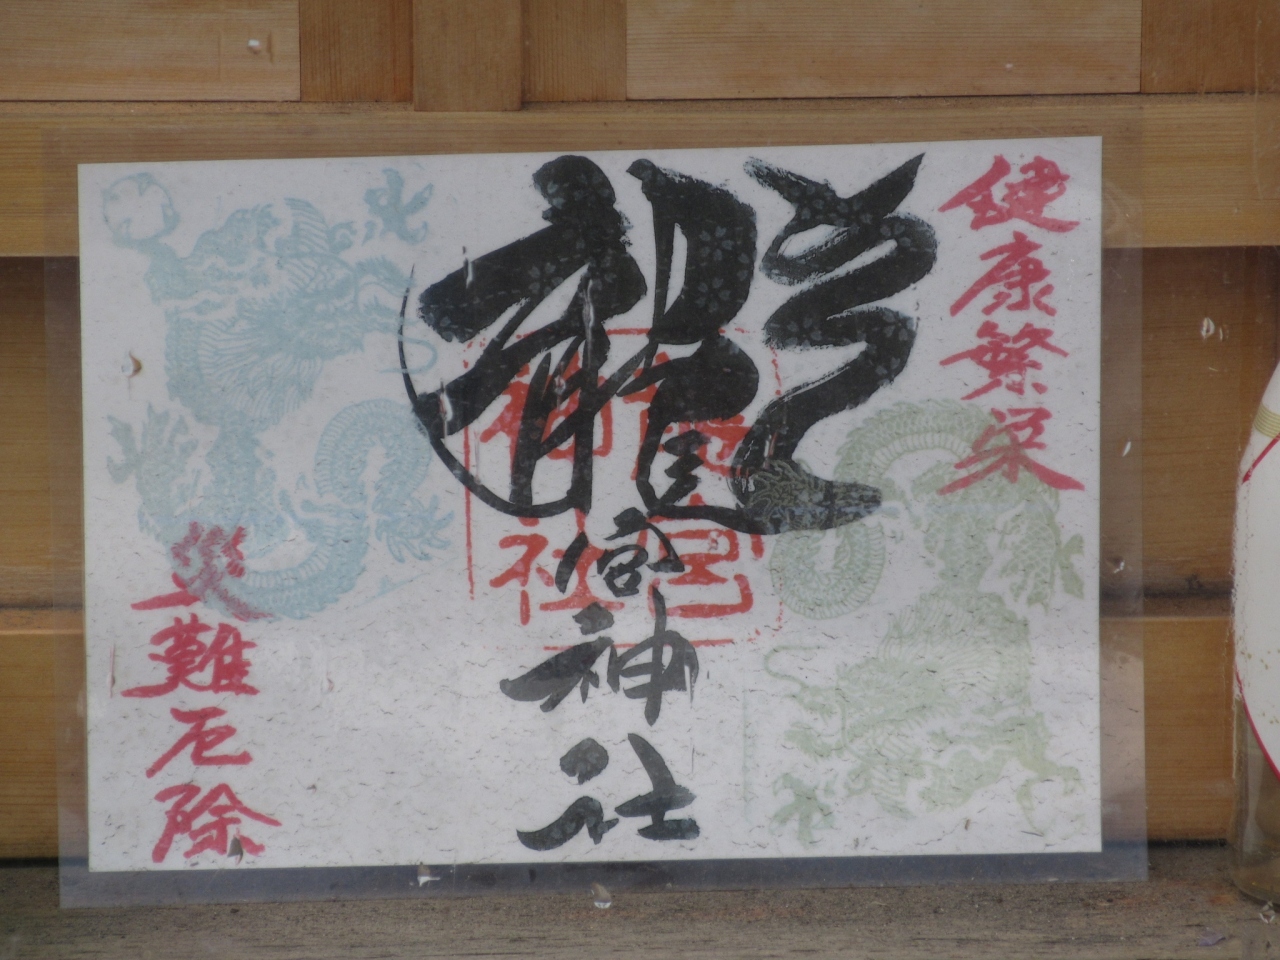 健康繁栄
龍宮神社
龍宮
神社
災難厄除